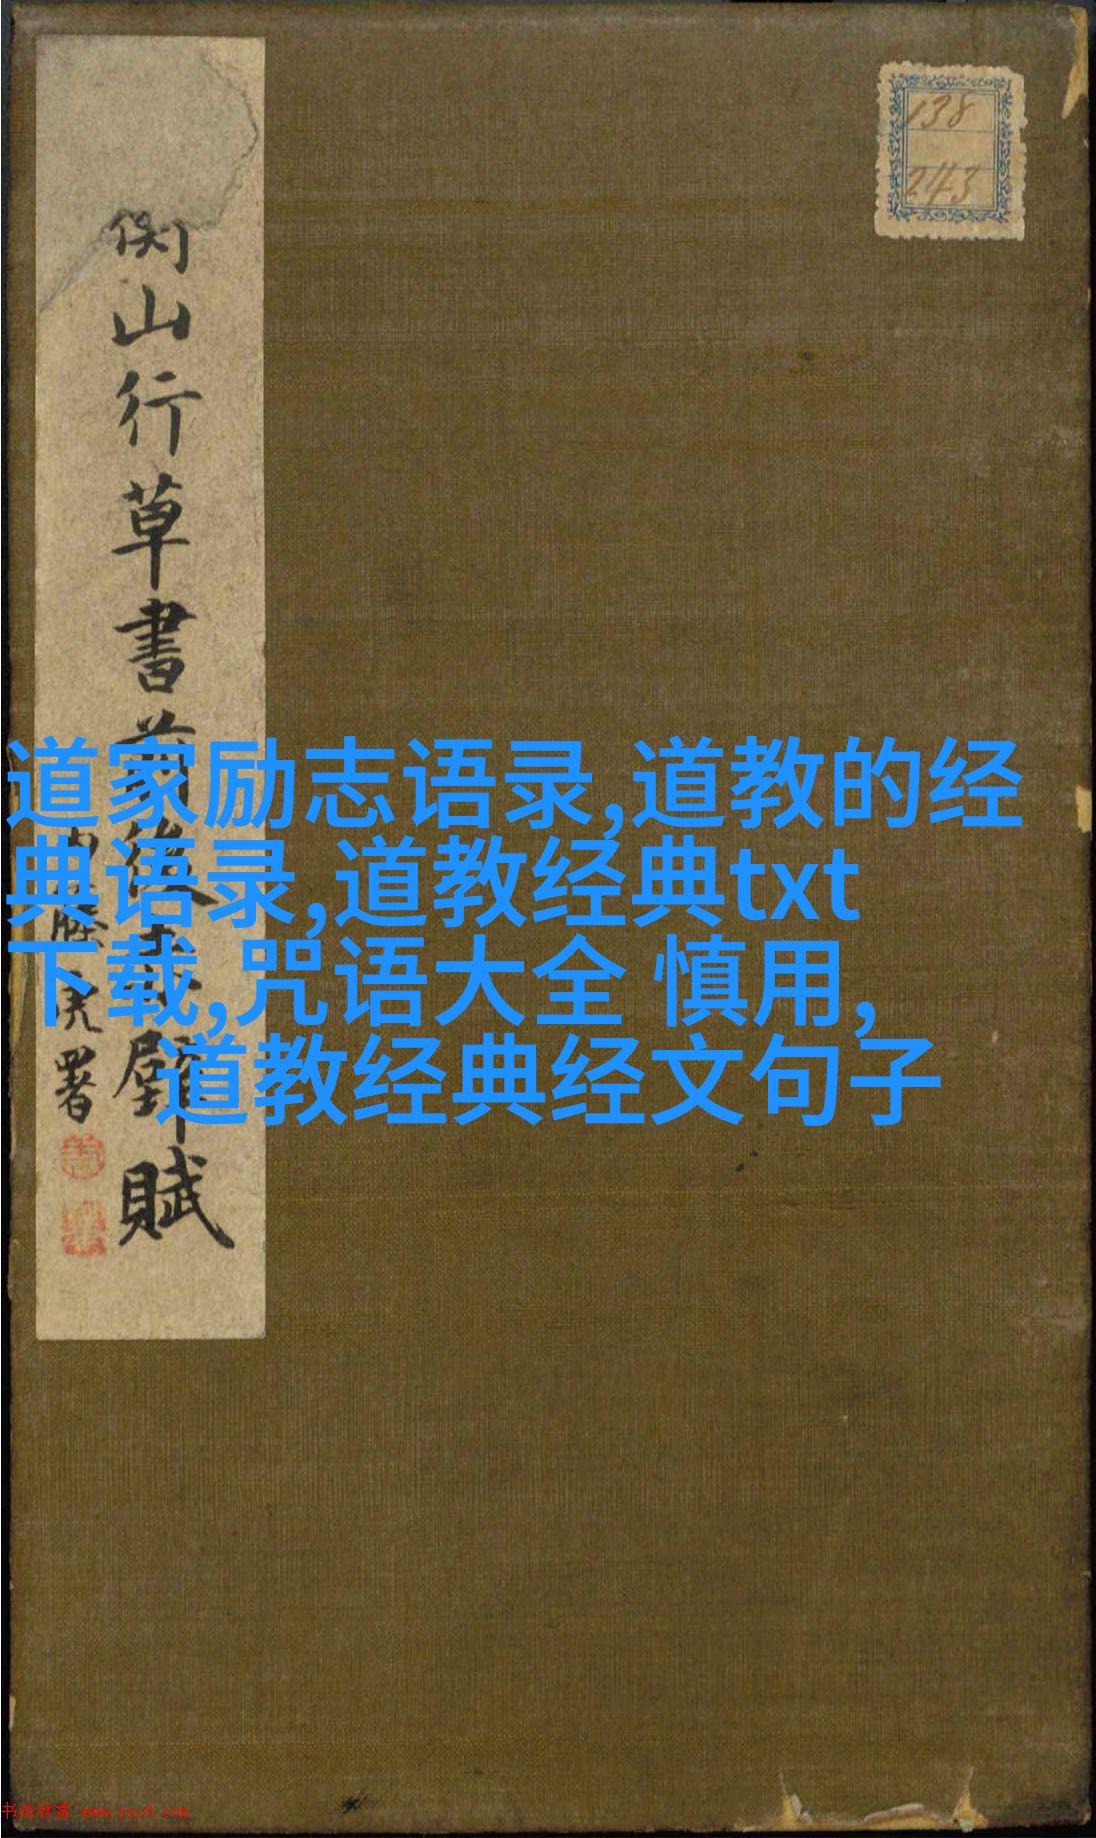 138
243
衡山行草書前後赤壁賦
内藤虎署
道家励志语录,道教的经
典语录,道教经典txt
下载,咒语大全 慎用,
道教经典经文句子
书法欣赏 www.yac8.com